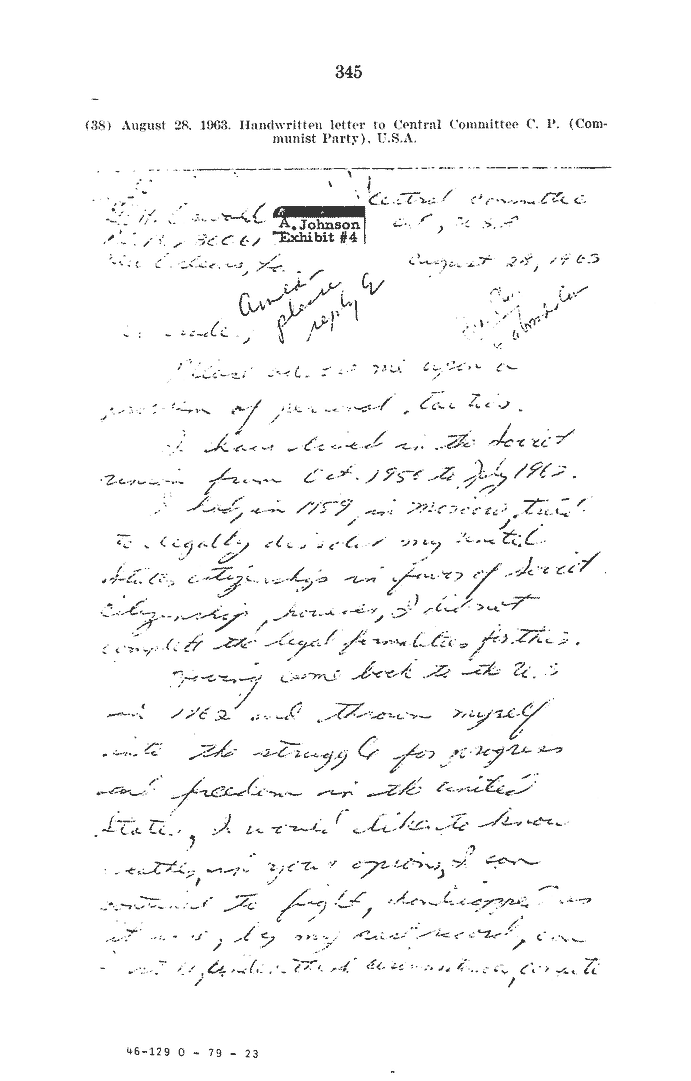 345
(38) August 28, 1963. Handwritten letter to Central Committee C. P. (Com-
munist Party), U.S.A.
Central Committee
L. H. Oswald
A. Johnson
Exhibit #4
C.P., U.S.A
P.O. Box 30061
New Orleans, La.
August 28, 1963
please
reply
Comrades,
Please advise me upon a
problem of personal tactics.
I have lived in the Soviet
Union from Oct. 1959 to July 1962.
I had, in 1959, in Moscow, tried
to legally dissolve my United
States citizenship in favor of Soviet
citizenship, however, I did not
complete the legal formalities for this.
Having come back to the U.S
in 1962 and thrown myself
into the struggle for progress
and freedom in the United
States, I would like to know
weather, in your opions, I can
continue to fight, handicapped as
it were, by my past record, can
I still, under these circumstances, compete
46-129 O - 79 - 23